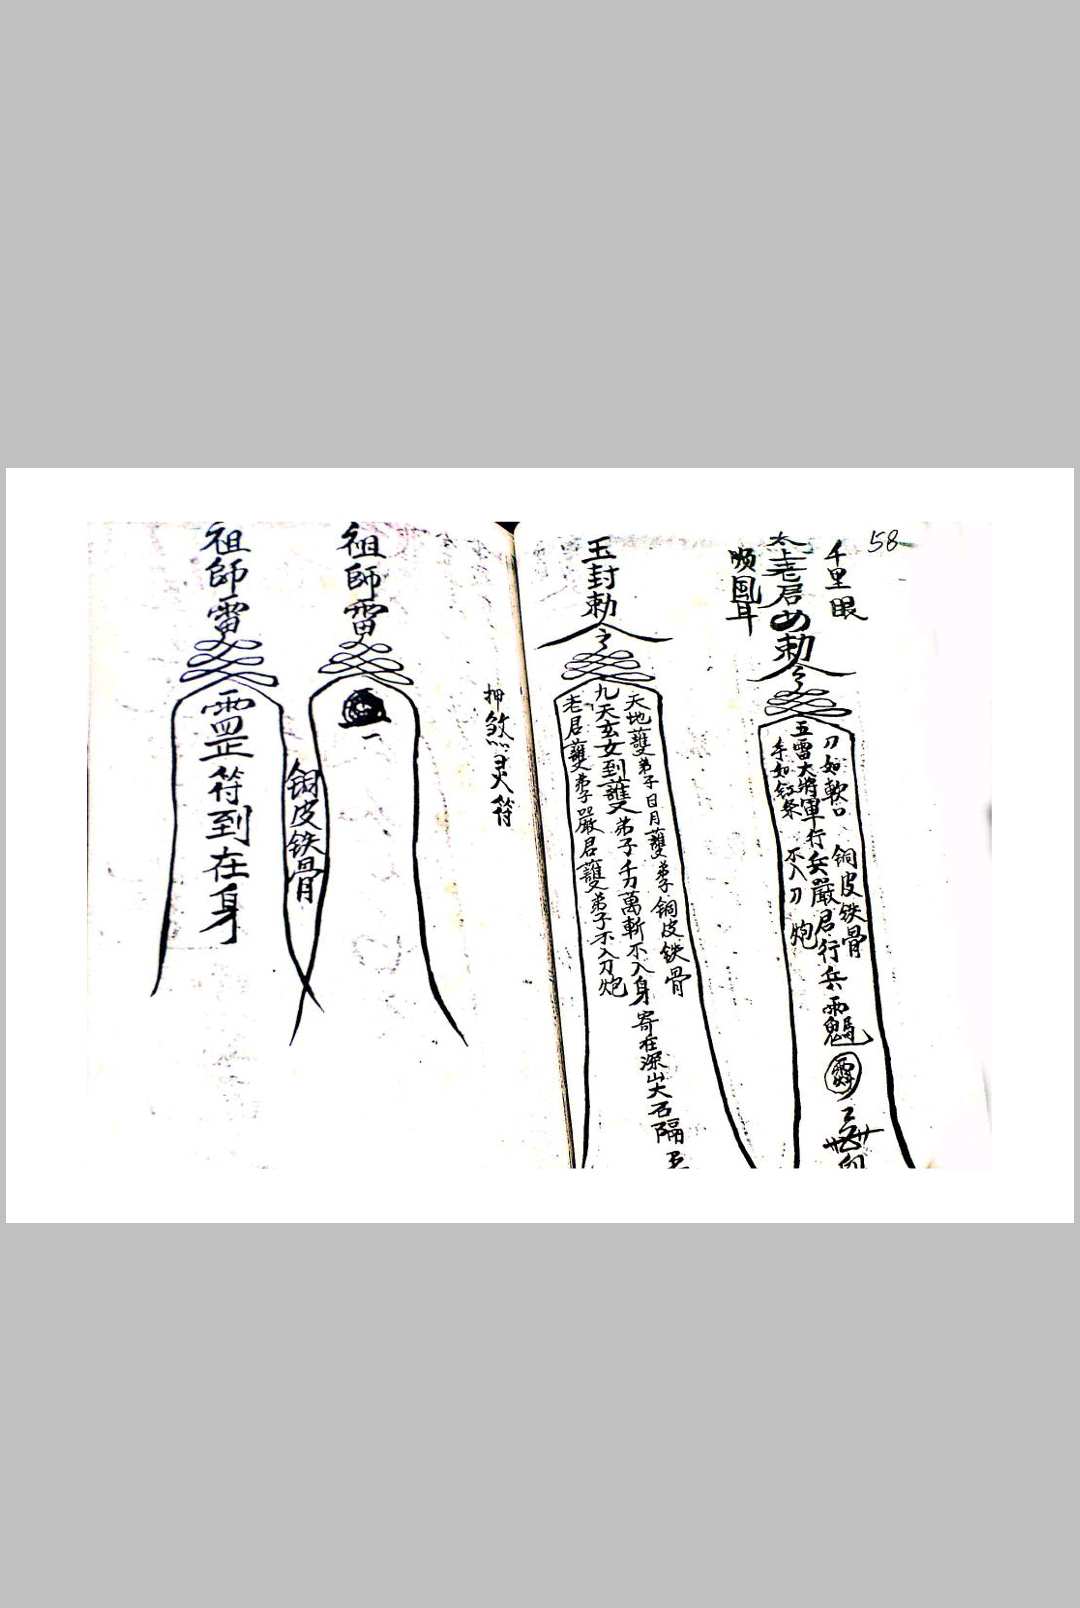 58
千里眼
太上老君
勅令
順風耳
刀如軟口
銅皮铁骨
五雷大將軍行兵嚴君行兵
手如紅条
不入刀炮
玉封勅令
天地護弟子日月護弟子銅皮铁骨
九天玄女到護弟子千刀萬斬不入身寄在深山大石隔
老君護弟子嚴君護弟子不入刀炮
押煞灵符
祖師雷
銅皮铁骨
祖師雷
符到在身